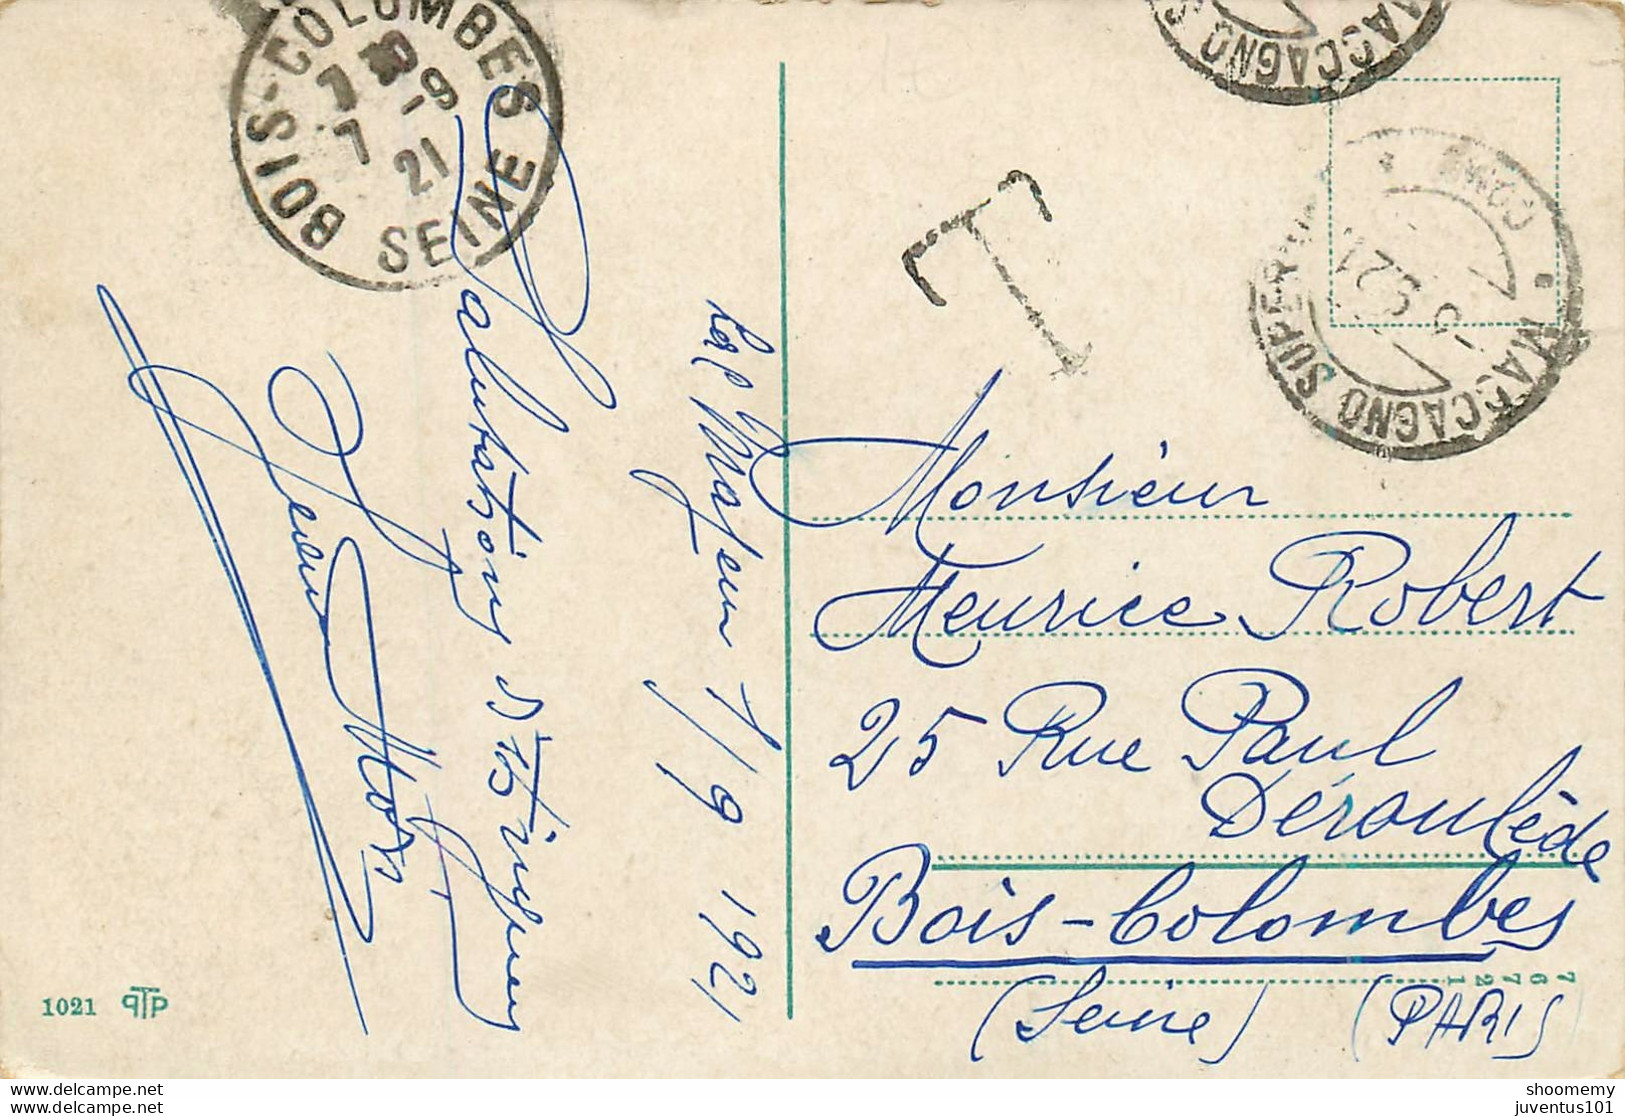 BOIS-COLOMBES
7 9
7 - 21
SEINE
MACCAGNO S
T
MACCAGNO SUPERIORE
COMO
5 9 21
Salutations distinguées
Lac Majeur 1/9 1921
Monsieur
Meurice Robert
25 Rue Paul
Déroulède
Bois-Colombes
(Seine) (PARIS)
76721
1021 PTP
www.delcampe.net
www.delcampe.net
shoomemy
juventus101